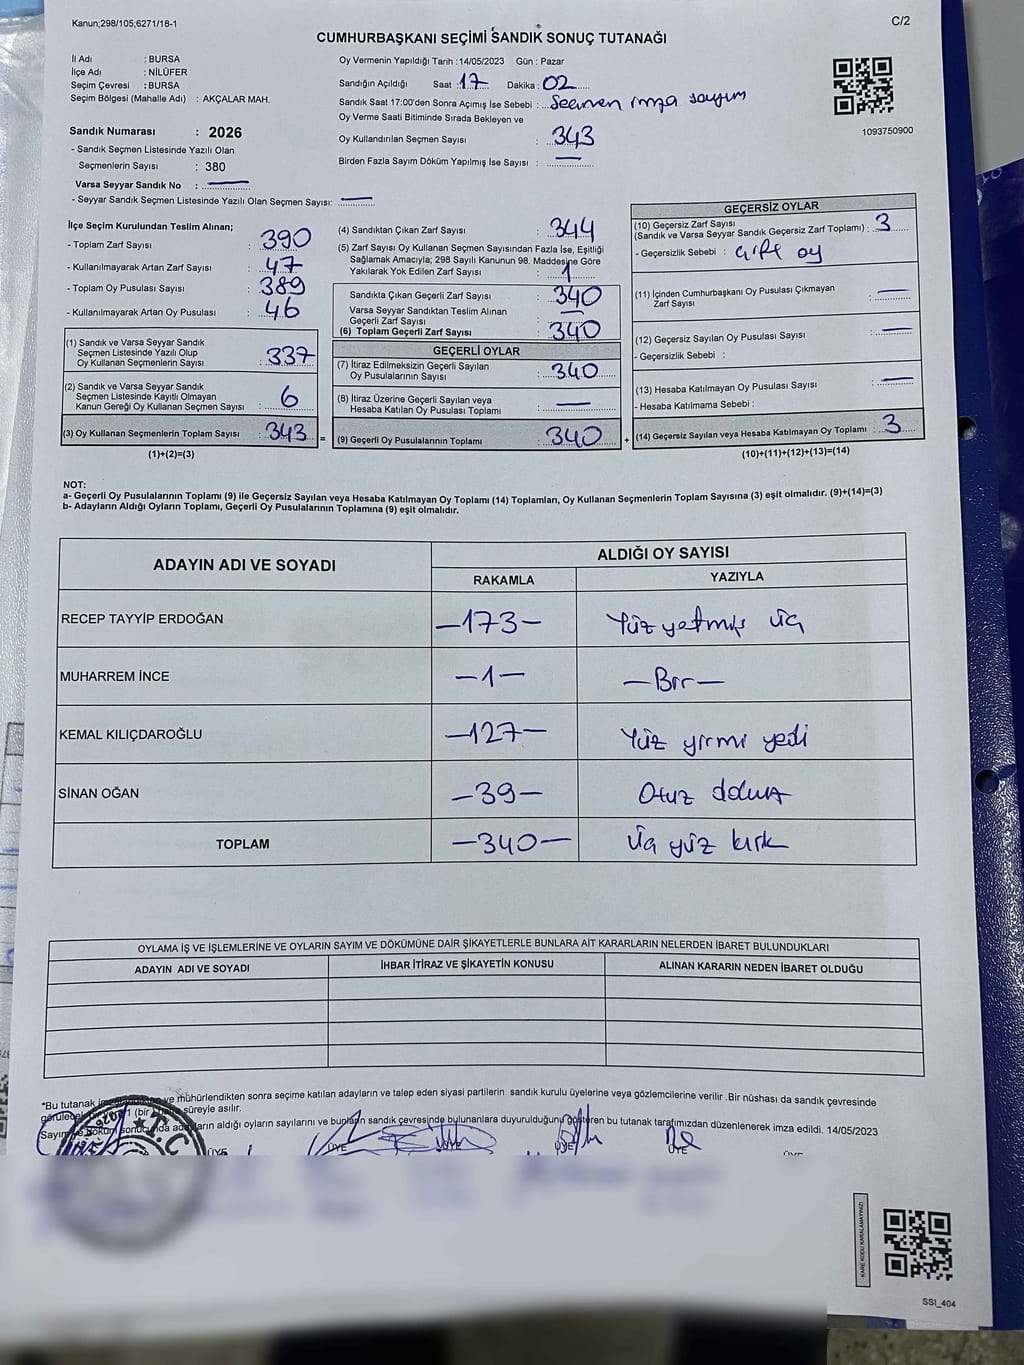 Kanun;298/105,6271/18-1
C/2
CUMHURBAŞKANI SEÇİMİ SANDIK SONUÇ TUTANAĞI
İl Adı : BURSA
İlçe Adı : NİLÜFER
Seçim Çevresi : BURSA
Seçim Bölgesi (Mahalle Adı) : AKÇALAR MAH.
Sandık Numarası : 2026
- Sandık Seçmen Listesinde Yazılı Olan
Seçmenlerin Sayısı : 380
Varsa Seyyar Sandık No : —
- Seyyar Sandık Seçmen Listesinde Yazılı Olan Seçmen Sayısı: —
Oy Vermenin Yapıldığı Tarih :14/05/2023 Gün : Pazar
Sandığın Açıldığı Saat :17 Dakika : 02
Sandık Saat 17:00'den Sonra Açımış İse Sebebi : Seçmen imza sayım
Oy Verme Saati Bitiminde Sırada Bekleyen ve
Oy Kullandırılan Seçmen Sayısı : 343
Birden Fazla Sayım Döküm Yapılmış İse Sayısı : —
1093750900
İlçe Seçim Kurulundan Teslim Alınan;
- Toplam Zarf Sayısı : 390
- Kullanılmayarak Artan Zarf Sayısı : 47
- Toplam Oy Pusulası Sayısı : 389
- Kullanılmayarak Artan Oy Pusulası : 46
(1) Sandık ve Varsa Seyyar Sandık
Seçmen Listesinde Yazılı Olup
Oy Kullanan Seçmenlerin Sayısı : 337
(2) Sandık ve Varsa Seyyar Sandık
Seçmen Listesinde Kayıtlı Olmayan
Kanun Gereği Oy Kullanan Seçmen Sayısı : 6
(3) Oy Kullanan Seçmenlerin Toplam Sayısı : 343 =
(1)+(2)=(3)
(4) Sandıktan Çıkan Zarf Sayısı : 344
(5) Zarf Sayısı Oy Kullanan Seçmen Sayısından Fazla İse, Eşitliği
Sağlamak Amacıyla; 298 Sayılı Kanunun 98. Maddesine Göre
Yakılarak Yok Edilen Zarf Sayısı : 1
Sandıkta Çıkan Geçerli Zarf Sayısı : 340
Varsa Seyyar Sandıktan Teslim Alınan
Geçerli Zarf Sayısı : —
(6) Toplam Geçerli Zarf Sayısı : 340
GEÇERLİ OYLAR
(7) İtiraz Edilmeksizin Geçerli Sayılan
Oy Pusulalarının Sayısı : 340
(8) İtiraz Üzerine Geçerli Sayılan veya
Hesaba Katılan Oy Pusulası Toplamı : —
(9) Geçerli Oy Pusulalarının Toplamı : 340 +
GEÇERSİZ OYLAR
(10) Geçersiz Zarf Sayısı
(Sandık ve Varsa Seyyar Sandık Geçersiz Zarf Toplamı) : 3
- Geçersizlik Sebebi : çift oy
(11) İçinden Cumhurbaşkanı Oy Pusulası Çıkmayan
Zarf Sayısı : —
(12) Geçersiz Sayılan Oy Pusulası Sayısı : —
- Geçersizlik Sebebi :
(13) Hesaba Katılmayan Oy Pusulası Sayısı : —
- Hesaba Katılmama Sebebi :
(14) Geçersiz Sayılan veya Hesaba Katılmayan Oy Toplamı : 3
(10)+(11)+(12)+(13)=(14)
NOT:
a- Geçerli Oy Pusulalarının Toplamı (9) ile Geçersiz Sayılan veya Hesaba Katılmayan Oy Toplamı (14) Toplamları, Oy Kullanan Seçmenlerin Toplam Sayısına (3) eşit olmalıdır. (9)+(14)=(3)
b- Adayların Aldığı Oyların Toplamı, Geçerli Oy Pusulalarının Toplamına (9) eşit olmalıdır.
ADAYIN ADI VE SOYADI
ALDIĞI OY SAYISI
RAKAMLA YAZIYLA
RECEP TAYYİP ERDOĞAN —173— Yüz yetmiş üç
MUHARREM İNCE —1— —Bir—
KEMAL KILIÇDAROĞLU —127— Yüz yirmi yedi
SİNAN OĞAN —39— Otuz dokuz
TOPLAM —340— Üç yüz kırk
OYLAMA İŞ VE İŞLEMLERİNE VE OYLARIN SAYIM VE DÖKÜMÜNE DAİR ŞİKAYETLERLE BUNLARA AİT KARARLARIN NELERDEN İBARET BULUNDUKLARI
ADAYIN ADI VE SOYADI İHBAR İTİRAZ VE ŞİKAYETİN KONUSU ALINAN KARARIN NEDEN İBARET OLDUĞU
*Bu tutanak ve mühürlendikten sonra seçime katılan adayların ve talep eden siyasi partilerin sandık kurulu üyelerine veya gözlemcilerine verilir .Bir nüshası da sandık çevresinde
1 (bir) süreyle asılır.
Sayım ve döküm sonucunda adayların aldığı oyların sayılarını ve bunların sandık çevresinde bulunanlara duyurulduğunu gösteren bu tutanak tarafımızdan düzenlenerek imza edildi. 14/05/2023
ÜYE ÜYE ÜYE ÜYE ÜYE ÜYE
KARE KODU KARALAMAYINIZ!
SSI_404